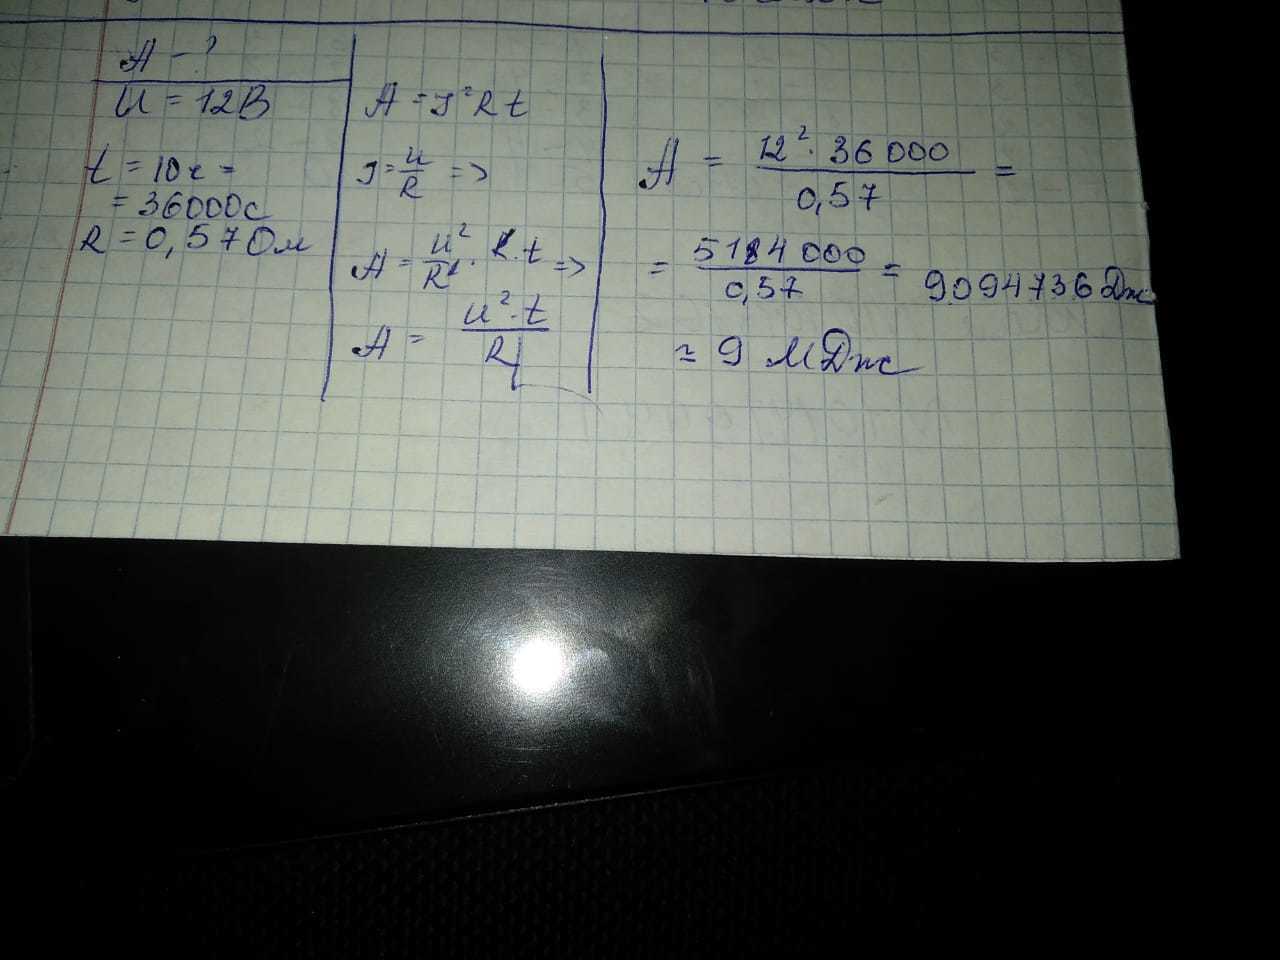 A - ?
U = 12В
t = 10ч =
= 36000с
R = 0,57 Ом
A = I²Rt
I = U/R =>
A = U²/R² · R · t =>
A = U² · t / R
A = 12² · 36 000 / 0,57 =
= 5184 000 / 0,57 = 9094736 Дж
≈ 9 МДж